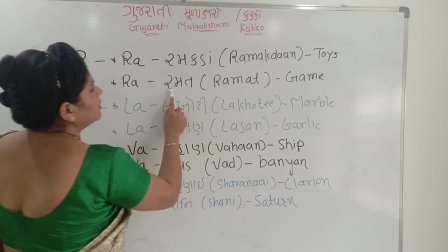 ગુજરાતી મૂળાક્ષરો / કક્કો
Gujarati Mulaaksharo Kakko
- * Ra - રમકડાં (Ramakdaan) - Toys
* Ra - રમત (Ramat) - Game
* La - (Lakhotee) - Marble
* La - (Lasan) - Garlic
Va - (Vahaan) - Ship
Va - (Vad) - banyan
(Sharanaai) -
(Shani) - Saturn